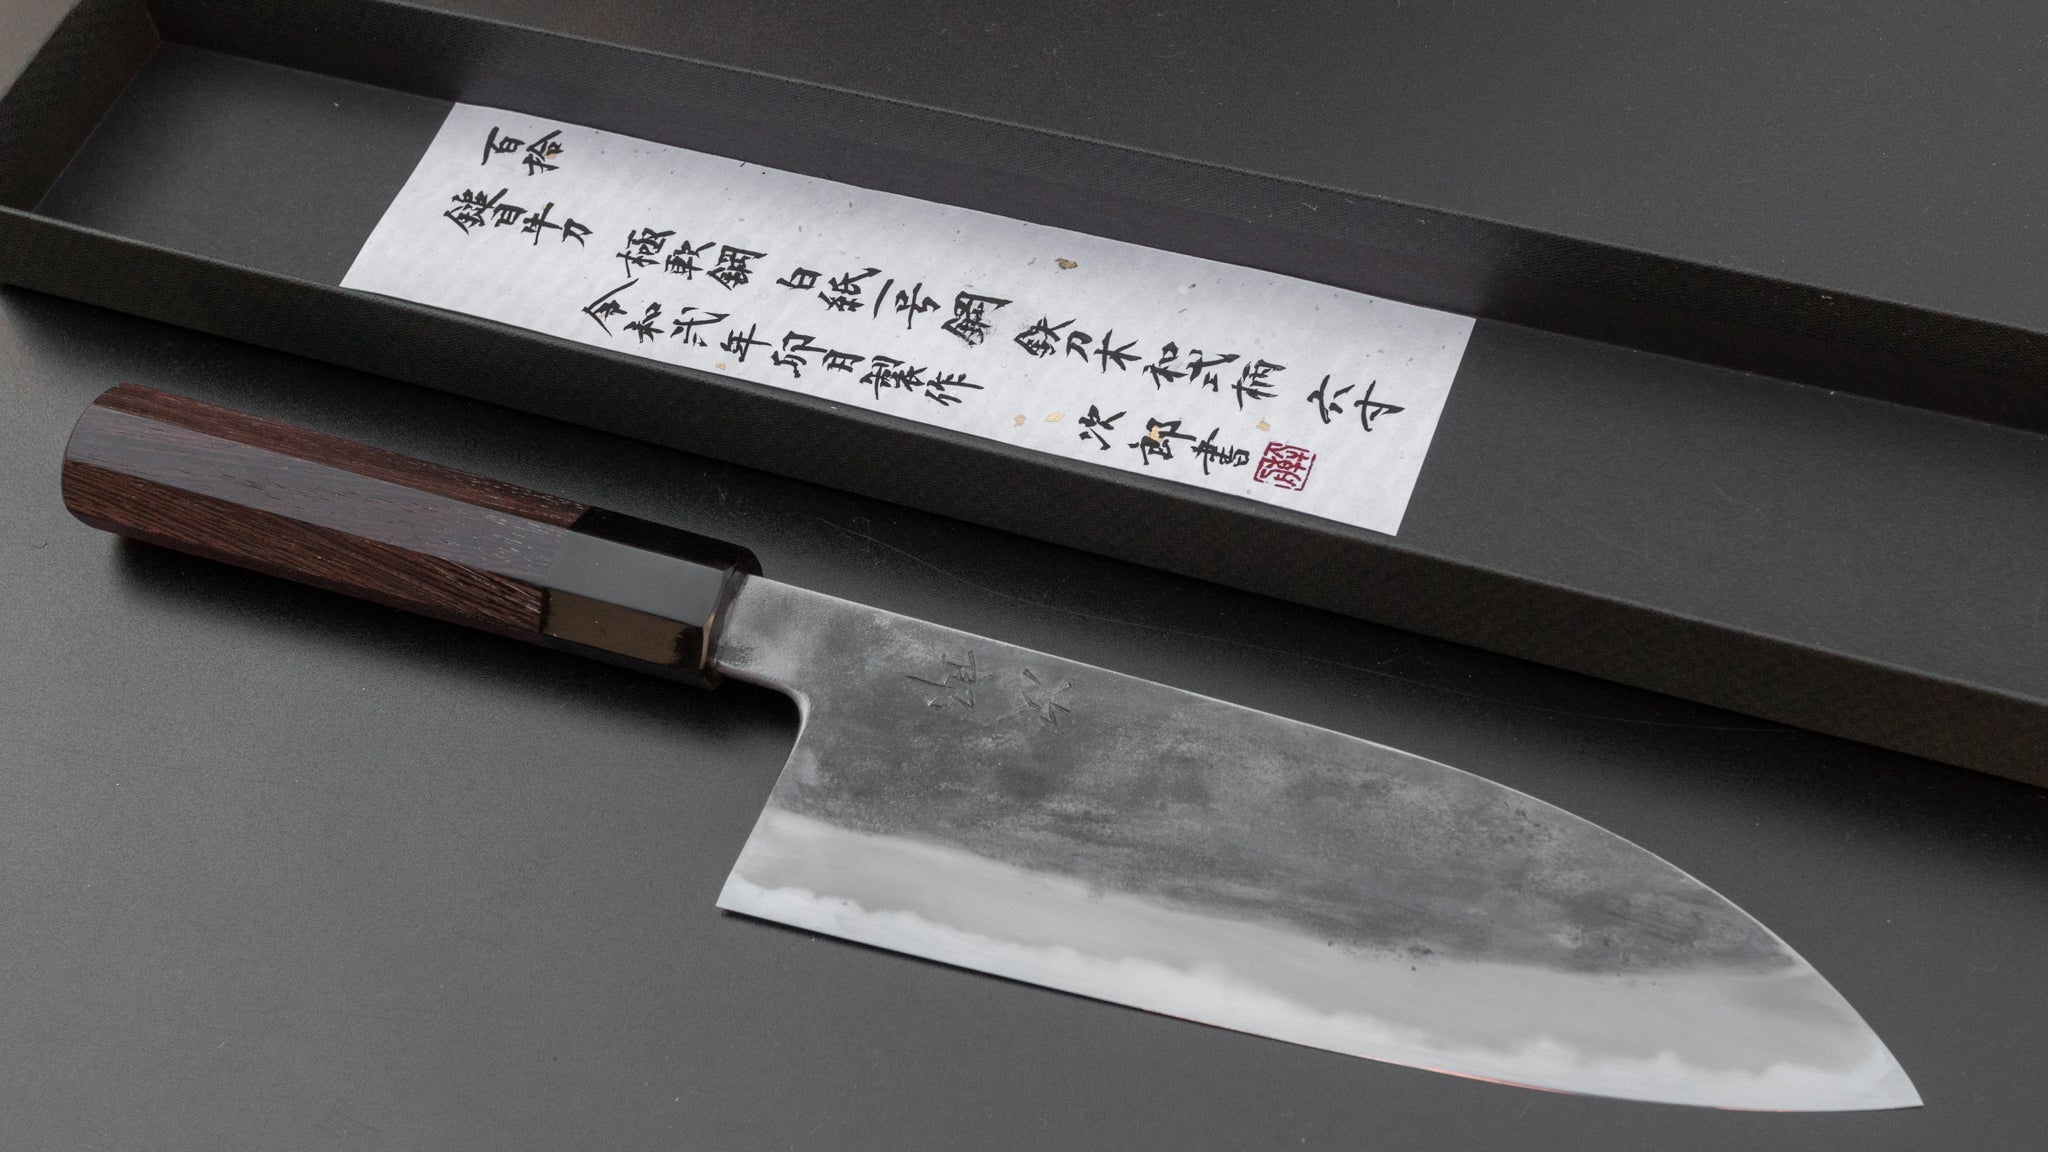 百拾
鎚目牛刀 極軟鋼 白紙一号鋼 鉄刀木和式柄 六寸
令和弐年卯月製作 次郎書
次郎